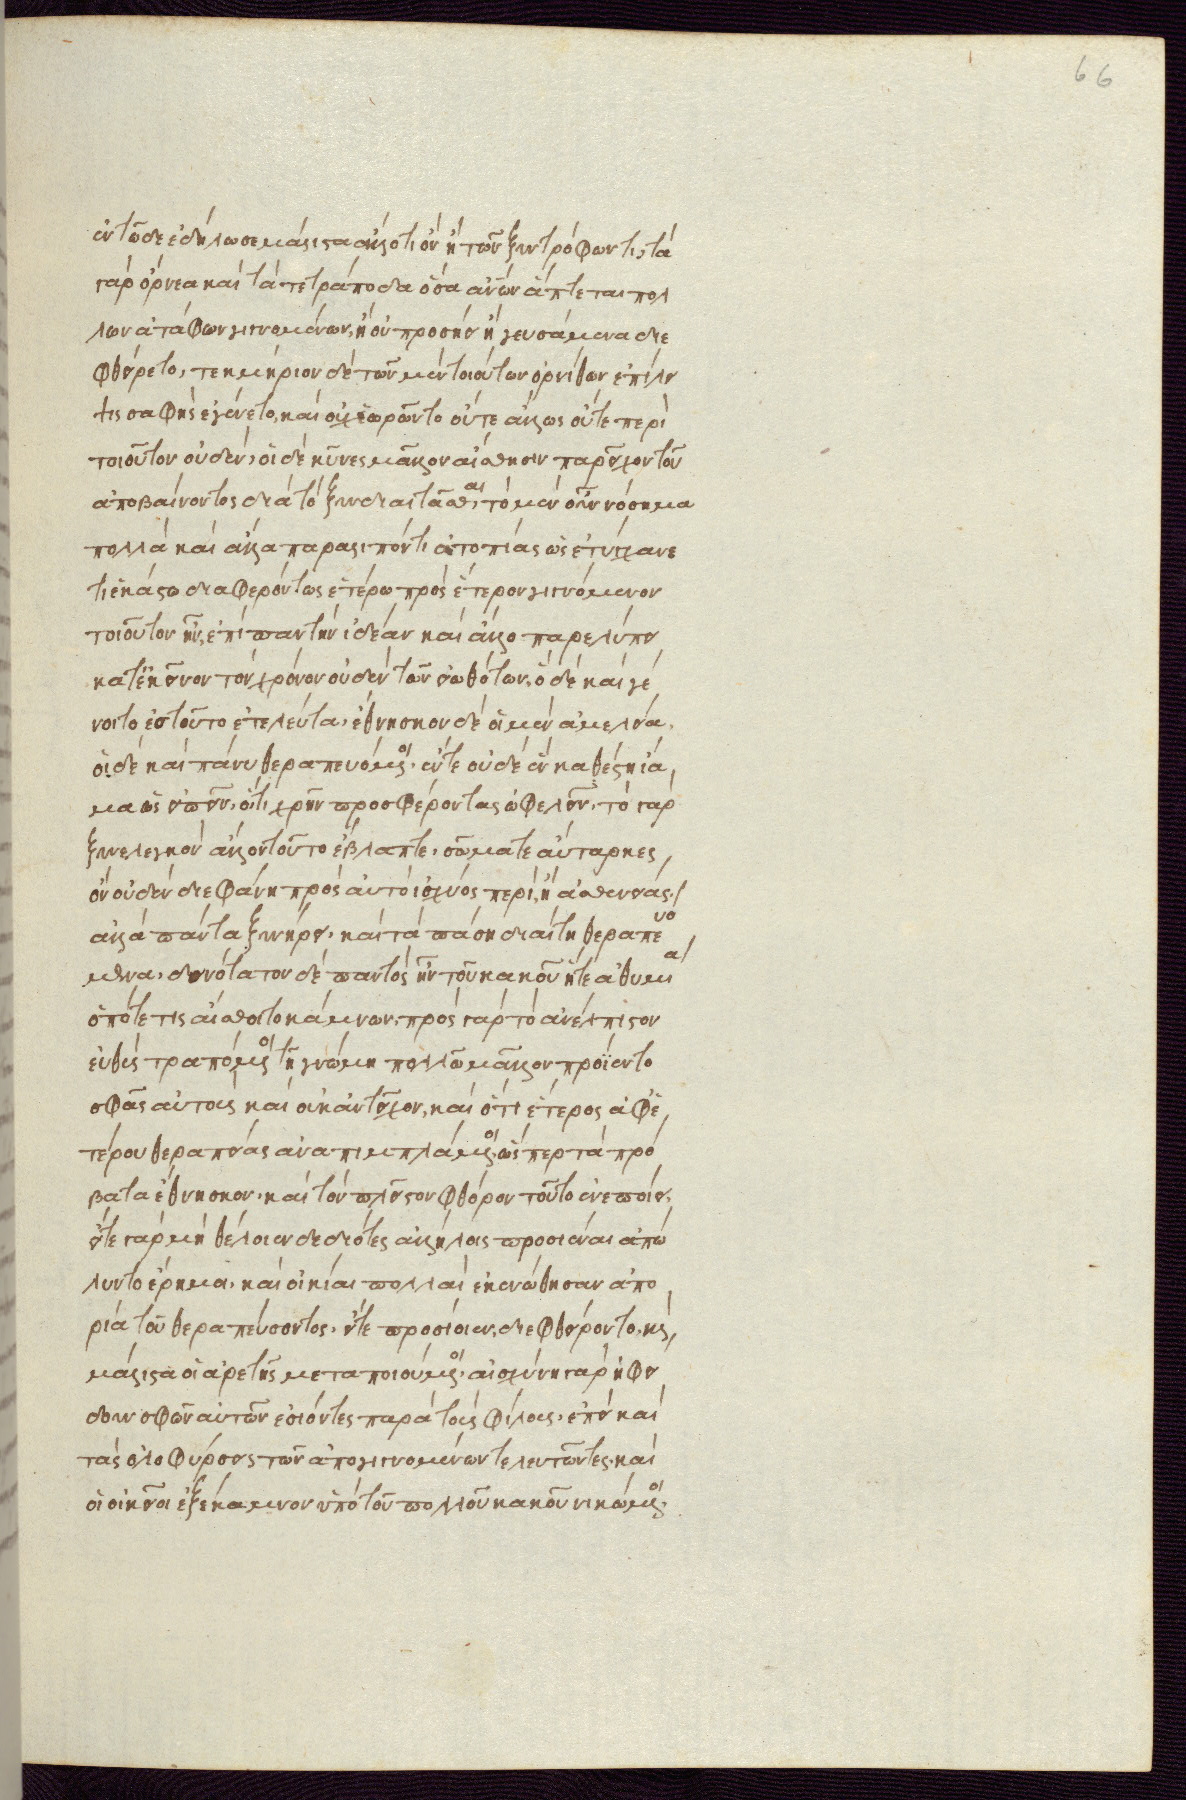 66
ἐν τῶδε ἐδήλωσε μάλιστα ἄλλο τι ὂν ἢ τῶν ξυντρόφων τι, τὰ
γὰρ ὄρνεα καὶ τὰ τετράποδα ὅσα ἀν̅ων ἅπτεται πολ
λῶν ἀτάφων γιγνομένων, ἢ οὐ προσήει ἢ γευσάμενα διε
φθείρετο, τεκμήριον δὲ τῶν μὲν τοιούτων ὀρνίθων ἐπίλει
ψις σαφὴς ἐγένετο, καὶ οὐχ ἑωρῶντο οὔτε ἄλλως οὔτε περὶ
τοιοῦτον οὐδέν, οἱ δὲ κύνες μᾶλλον αἴσθησιν παρεῖχον τοῦ
ἀποβαίνοντος διὰ τὸ ξυνδιαιτᾶσθαι, τὸ μὲν οὖν νόσημα
πολλὰ καὶ ἄλλα παραλιπόντι ἀτοπίας ὡς ἐτύγχανε
τι ἑκάστω διαφερόντως ἑτέρω πρὸς ἕτερον γιγνόμενον
τοιοῦτον ἦν, ἐπὶ πᾶν τὴν ἰδέαν καὶ ἄλλο παρελύπει
κατ' ἐκεῖνον τὸν χρόνον οὐδὲν τῶν εἰωθότων, ὃ δὲ καὶ γέ
νοιτο ἐς τοῦτο ἐτελεύτα, ἔθνησκον δὲ οἱ μὲν ἀμελεία,
οἱ δὲ καὶ πάνυ θεραπευόμενοι, ἕν τε οὐδὲ ἓν καθέστηκ ἴα
μα ὡς εἰπεῖν, ὅτι χρῆν προσφέροντας ὠφελεῖν, τὸ γὰρ
ξυνενεγκὸν ἄλλον τοῦτο ἔβλαπτε, σῶμά τε αὔταρκες
ὂν οὐδὲν διεφάνη πρὸς αὐτὸ ἰσχύος πέρι, ἢ ἀσθενείας,
ἀλλὰ πάντα ξυνήρει, καὶ τὰ πάση διαίτη θεραπευό
μενα, δεινότατον δὲ παντὸς ἦν τοῦ κακοῦ ἥτε ἀθυμία
ὁπότε τις αἴσθοιτο κάμνων, πρὸς γὰρ τὸ ἀνέλπιστον
εὐθὺς τραπόμενοι τῆ γνώμη πολλῶ μᾶλλον προΐεντο
σφᾶς αὐτοὺς καὶ οὐκ ἀντεῖχον, καὶ ὅτι ἕτερος ἀφ' ἑ
τέρου θεραπείας ἀναπιμπλάμενοι ὥσπερ τὰ πρό
βατα ἔθνησκον, καὶ τὸν πλεῖστον φθόρον τοῦτο ἐνεποίει,
εἴτε γὰρ μὴ θέλοιεν δεδιότες ἀλλήλοις προσιέναι ἀπώ
λυντο ἔρημοι, καὶ οἰκίαι πολλαὶ ἐκενώθησαν ἀπο
ρία τοῦ θεραπεύσοντος, εἴτε προσίοιεν, διεφθείροντο, καὶ
μάλιστα οἱ ἀρετῆς μεταποιούμενοι, αἰσχύνη γὰρ ἠφεί
δουν σφῶν αὐτῶν ἐσιόντες παρὰ τοὺς φίλους, ἐπεὶ καὶ
τὰς ὀλοφύρσεις τῶν ἀπογιγνομένων τελευτῶντες καὶ
οἱ οἰκεῖοι ἐξέκαμνον ὑπὸ τοῦ πολλοῦ κακοῦ νικώμενοι,